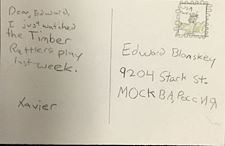 Dear, Edward,
I just watched
the Timber
Rattlers play
last week.
Xavier
Edward Blanskey
9204 Stark St.
МОСКВА, РоссИЯ